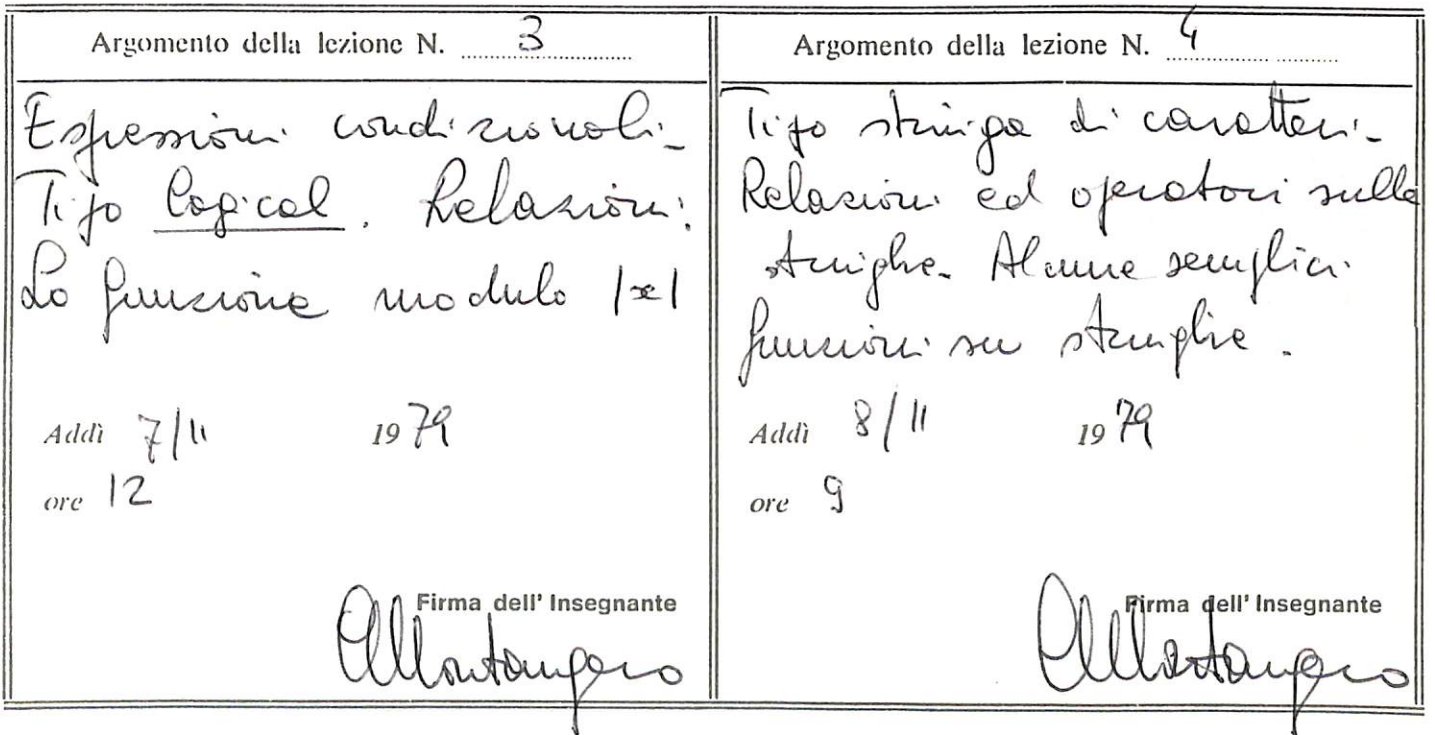 Argomento della lezione N. 3
Espressioni condizionali-
Tipo Logical. Relazioni.
La funzione modulo |x|
Addì 7/11 1979
ore 12
Firma dell' Insegnante
CMontangero
Argomento della lezione N. 4
Tipo stringa di caratteri-
Relazioni ed operatori sulle
stringhe. Alcune semplici
funzioni su stringhe.
Addì 8/11 1979
ore 9
Firma dell' Insegnante
CMontangero